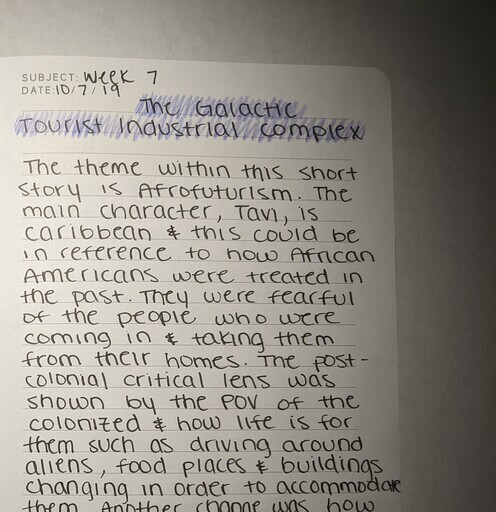 SUBJECT: Week 7
DATE: 10/7/19
The Galactic
Tourist Industrial Complex
The theme within this short
story is Afrofuturism. The
main character, Tavi, is
caribbean & this could be
in reference to how African
Americans were treated in
the past. They were fearful
of the people who were
coming in & taking them
from their homes. The post-
colonial critical lens was
shown by the POV of the
colonized & how life is for
them such as driving around
aliens, food places & buildings
changing in order to accommodate
them. Another change was how